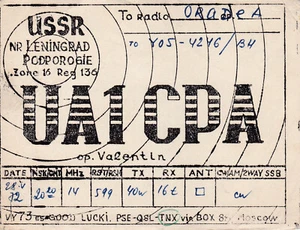 USSR
NR LENINGRAD
PODPOROGIE
Zone 16 Reg 136
To Radio ORADEA
TO YO5-4216/BH
UA1CPA
op. Valentin
DATE MSK/GMT MHz RST/RSM TX RX ANT CW/AM/2WAY SSB
72 20 20 14 599 40w 16t □ cw
VY 73 es GOOD LUCK!. PSE-QSL-TNX via BOX 88 Moscow